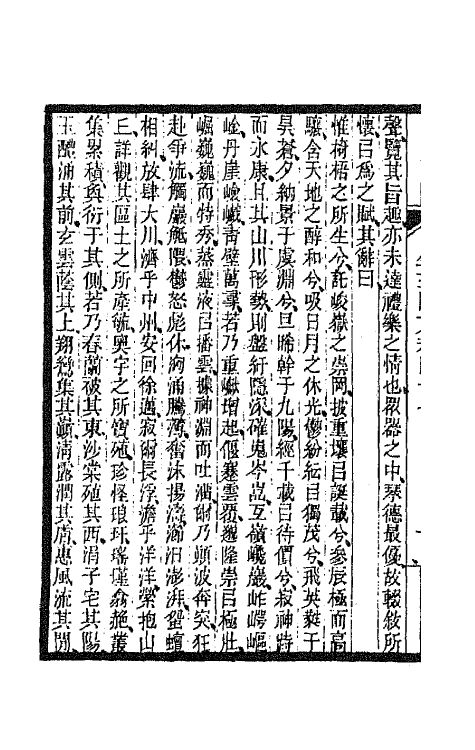 聲覽其旨趣亦未達禮樂之情也衆器之中琴德最優故輟敘所
懷㠯爲之賦其辭曰
惟椅梧之所生兮託峻嶽之崇岡披重壤㠯誕載兮參辰極而高
驤含天地之醇和兮吸日月之休光鬱紛紜㠯獨茂兮飛英蕤于
昊蒼夕納景于虞淵兮旦晞幹于九陽經千載㠯待價兮寂神跱
而永康且其山川形勢則盤紆隱深確嵬岑嵓互嶺巉巖岞崿嶇
崯丹崖嶮巇青壁萬尋若乃重巘增起偃蹇雲覆邈隆崇㠯極壯
崛巍巍而特秀蒸靈液㠯播雲據神淵而吐溜爾乃顛波奔突狂
赴爭流觸巖觝隈鬱怒彪休洶涌騰薄奮沫揚濤瀄汩澎湃蜿蟺
相糾放肆大川濟乎中州安回徐邁寂爾長浮澹乎洋洋縈抱山
丘詳觀其區土之所產毓奧宇之所寶殖珍怪琅玕瑤瑾翕赩叢
集累積奐衍于其側若乃春蘭被其東沙棠殖其西涓子宅其陽
玉醴涌其前玄雲蔭其上翔鸞集其巓清露潤其膚惠風流其閒